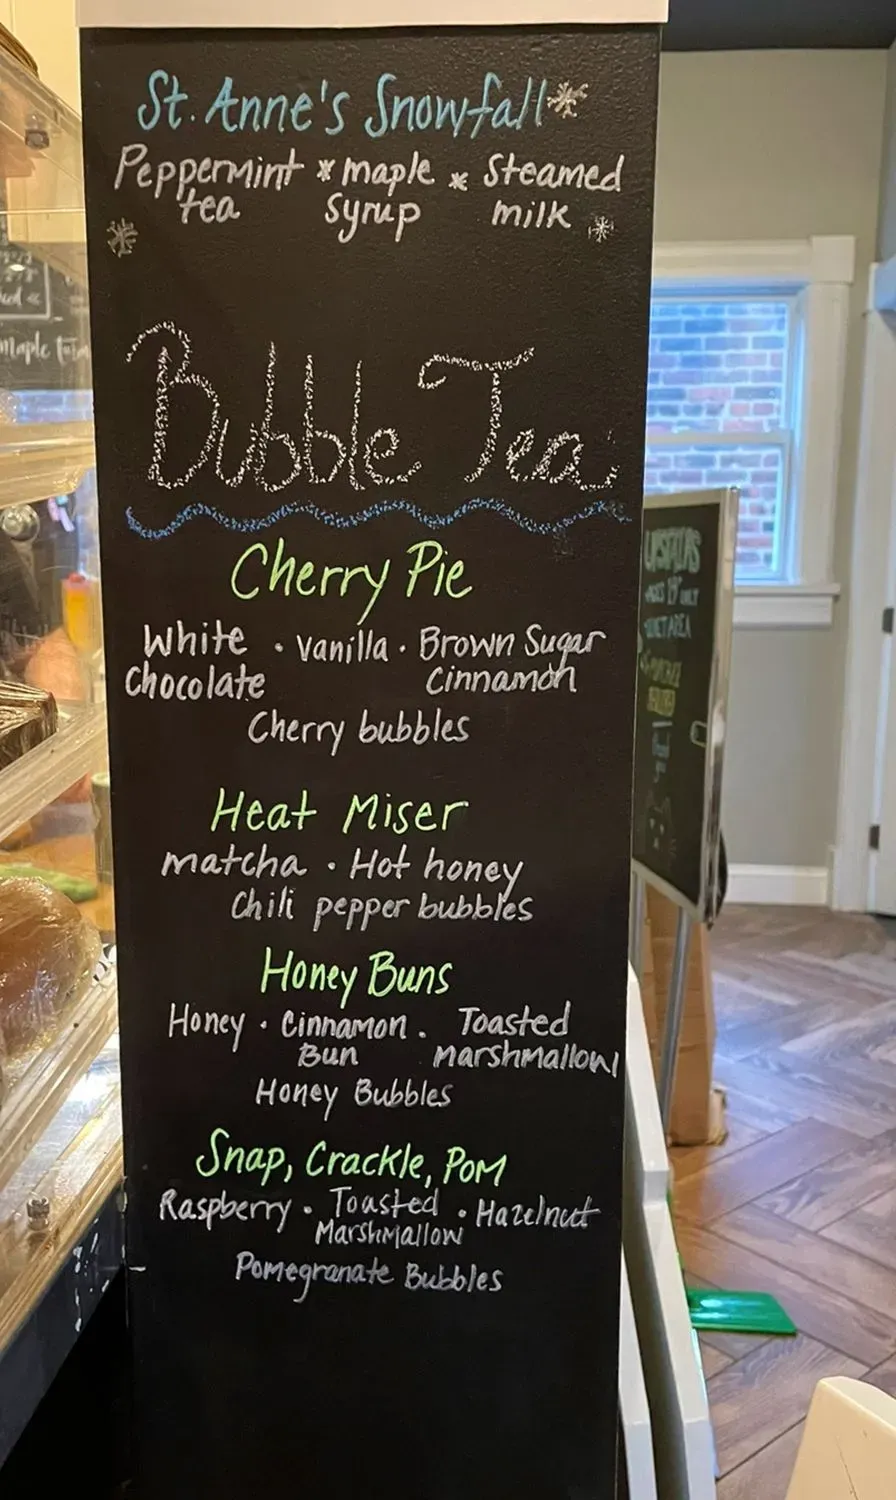 St. Anne's Snowfall
Peppermint * maple * Steamed
tea syrup milk
Bubble Tea
Cherry Pie
White · vanilla · Brown Sugar
Chocolate Cinnamon
Cherry bubbles
Heat Miser
matcha · Hot honey
Chili pepper bubbles
Honey Buns
Honey · Cinnamon · Toasted
Bun marshmallow
Honey Bubbles
Snap, Crackle, Pom
Raspberry · Toasted · Hazelnut
Marshmallow
Pomegranate Bubbles
Maple
UPSTAIRS
AGES 19+ ONLY
AREA